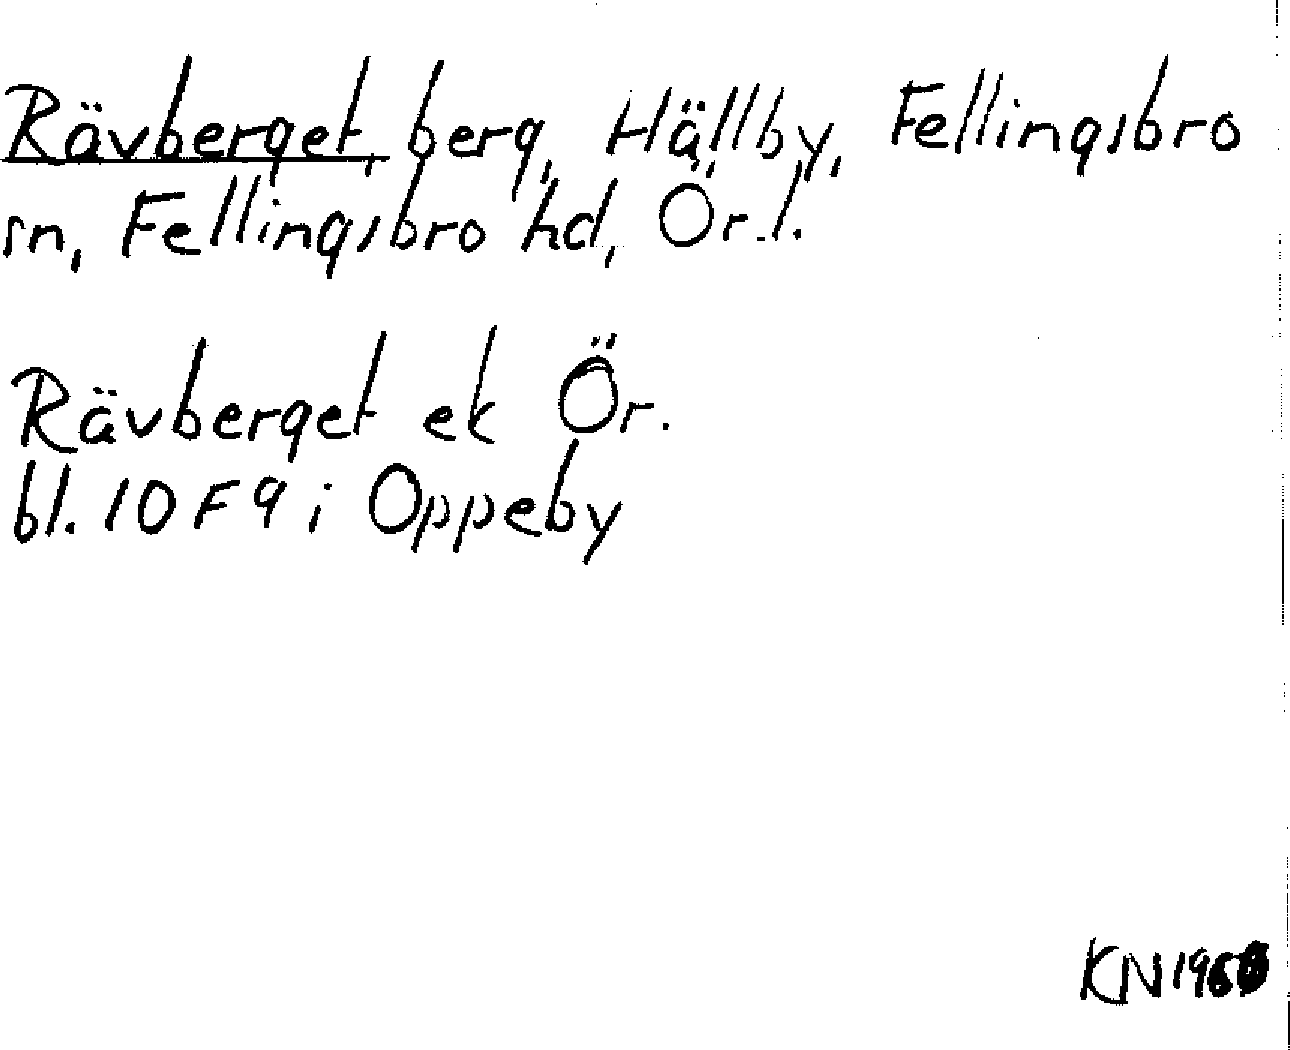 Rävberget, berg, Hällby, Fellingsbro
sn, Fellingsbro hd, Ör. l.
Rävberget ek Ör.
bl. 10 F 9 i Oppeby
KN 1960